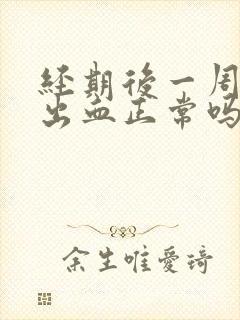 經期後一周
出血正常嗎
余生唯愛琦